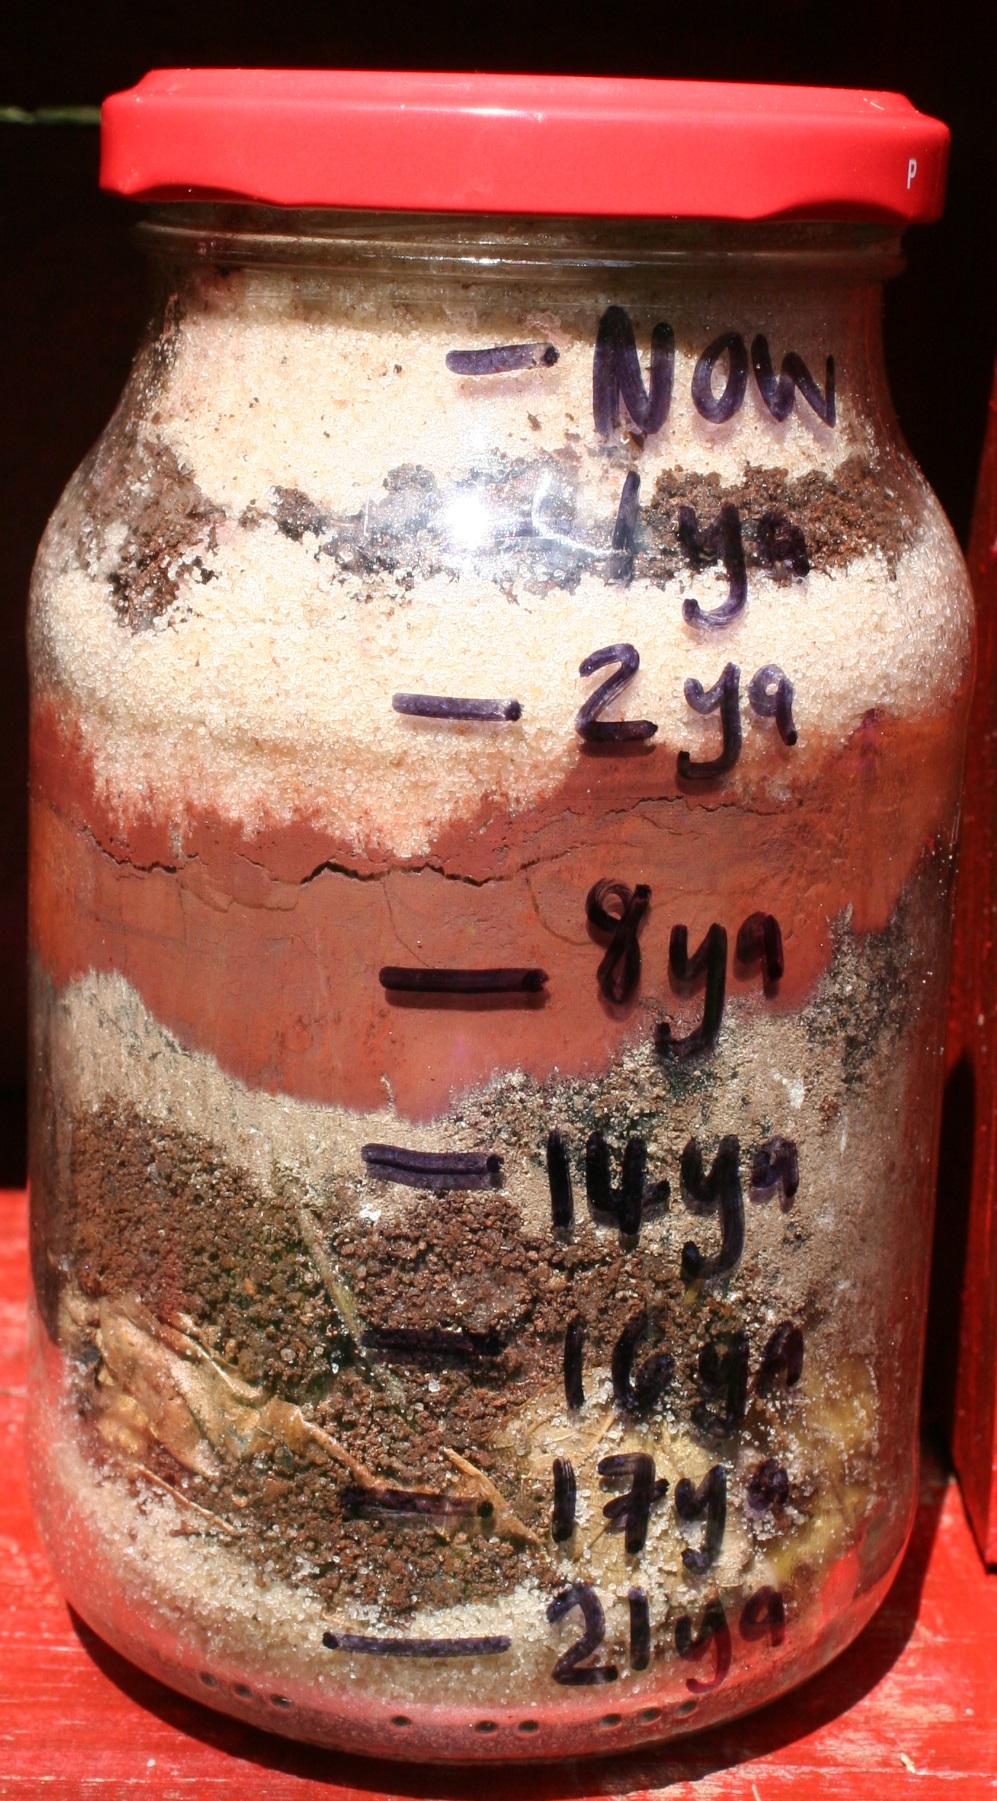 P
— Now
1 ya
— 2 ya
— 8 ya
— 14 ya
— 16 ya
— 17 ya
— 21 ya